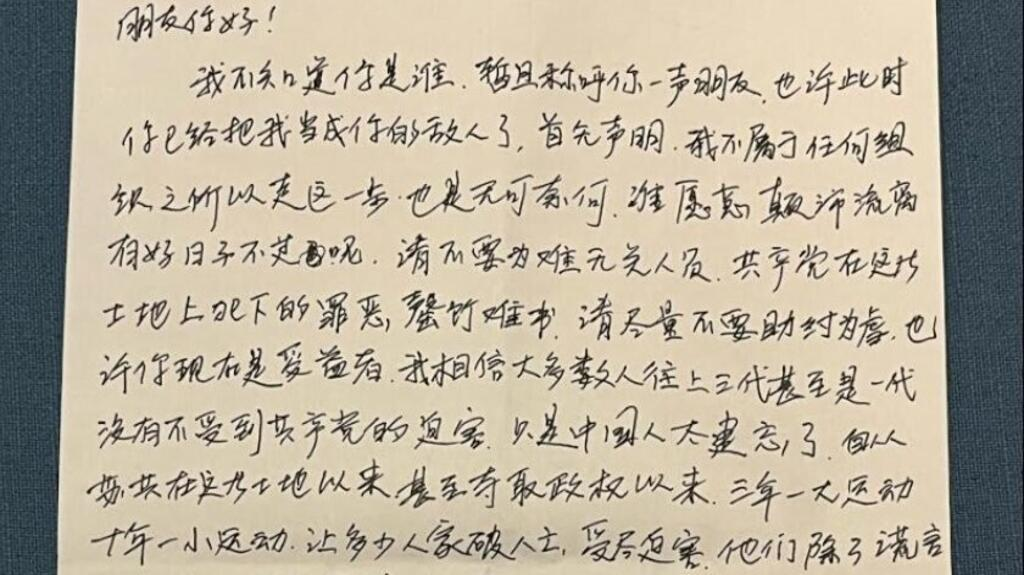 朋友你好！
我不知道你是谁. 暂且称呼你一声朋友, 也许此时
你已给把我当成你的敌人了, 首先声明. 我不属于任何组
织之所以走这一步. 也是无可奈何. 谁愿意颠沛流离
有好日子不过呢. 请不要为难无关人员. 共产党在这片
土地上犯下的罪恶, 罄竹难书. 请尽量不要助纣为虐. 也
许你现在是受益者. 我相信大多数人往上三代甚至是一代
没有不受到共产党的迫害. 只是中国人太健忘了. 自从
共在这片土地以来 甚至夺取政权以来. 三年一大运动
十年一小运动. 让多少人家破人亡, 受尽迫害. 他们除了谎言